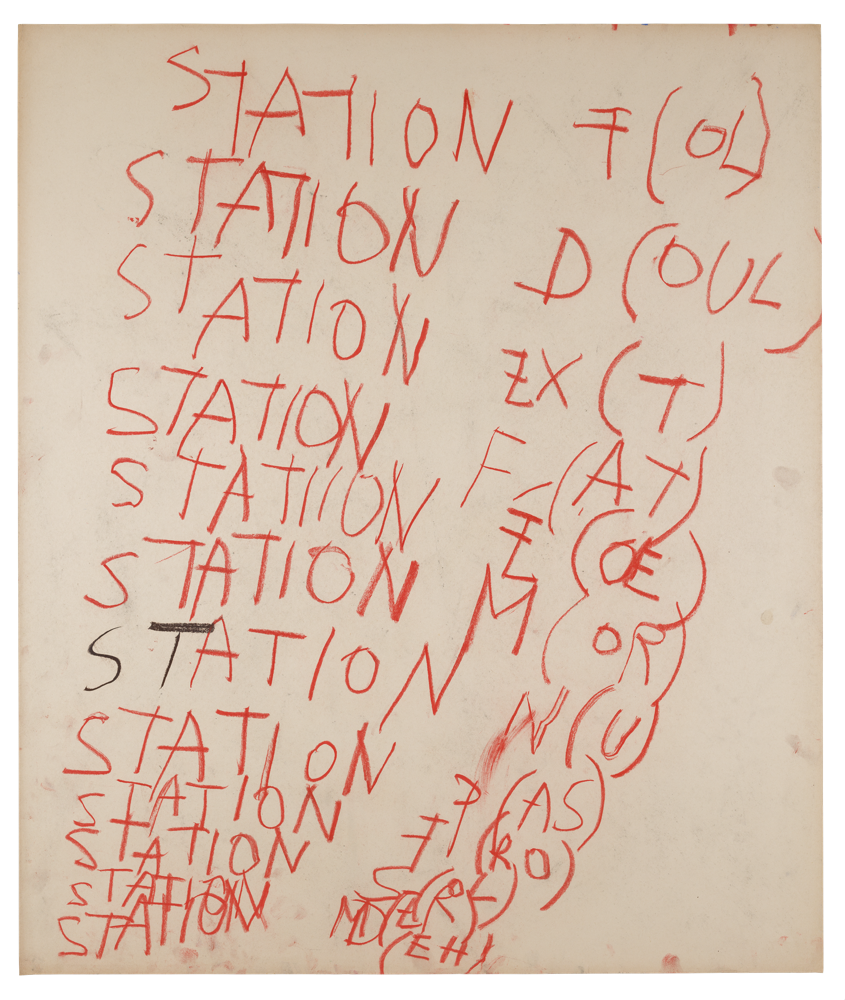 STATION F (OL)
STATION D (OUL)
STATION EX (T)
STATION F (AT)
STATIION F (OE)
STATION M (OR)
STATION
STATION N (U)
STATION P (AS)
STATION F (RO)
STATION S
STATION (EH)